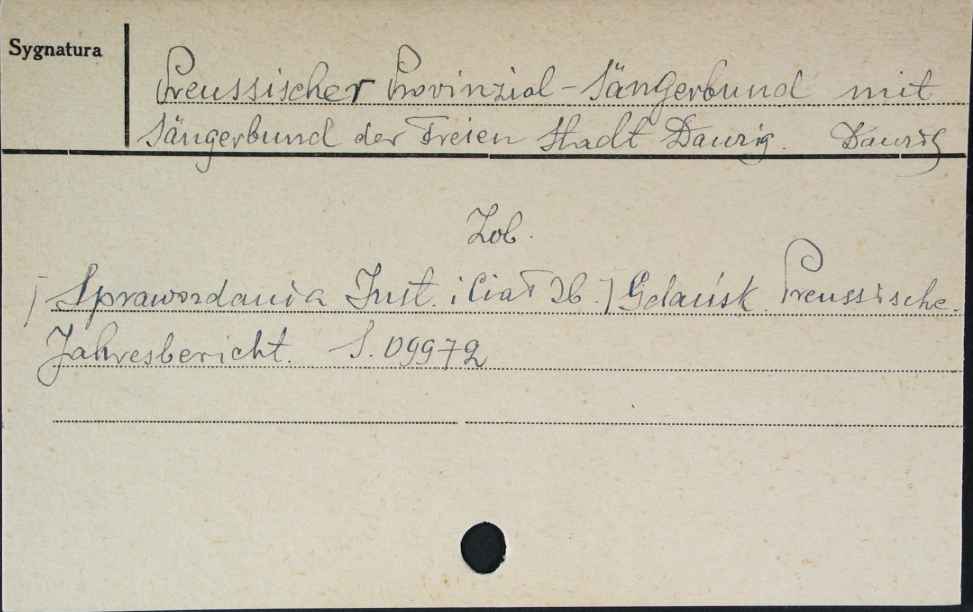 Sygnatura
Preussischer Provinzial-Sängerbund mit
Sängerbund der Freien Stadt Danzig. Danzig
Zob.
/Sprawozdania Inst. i Ciał Zb./ Gdańsk. Preussische.
Jahresbericht. S. 09972